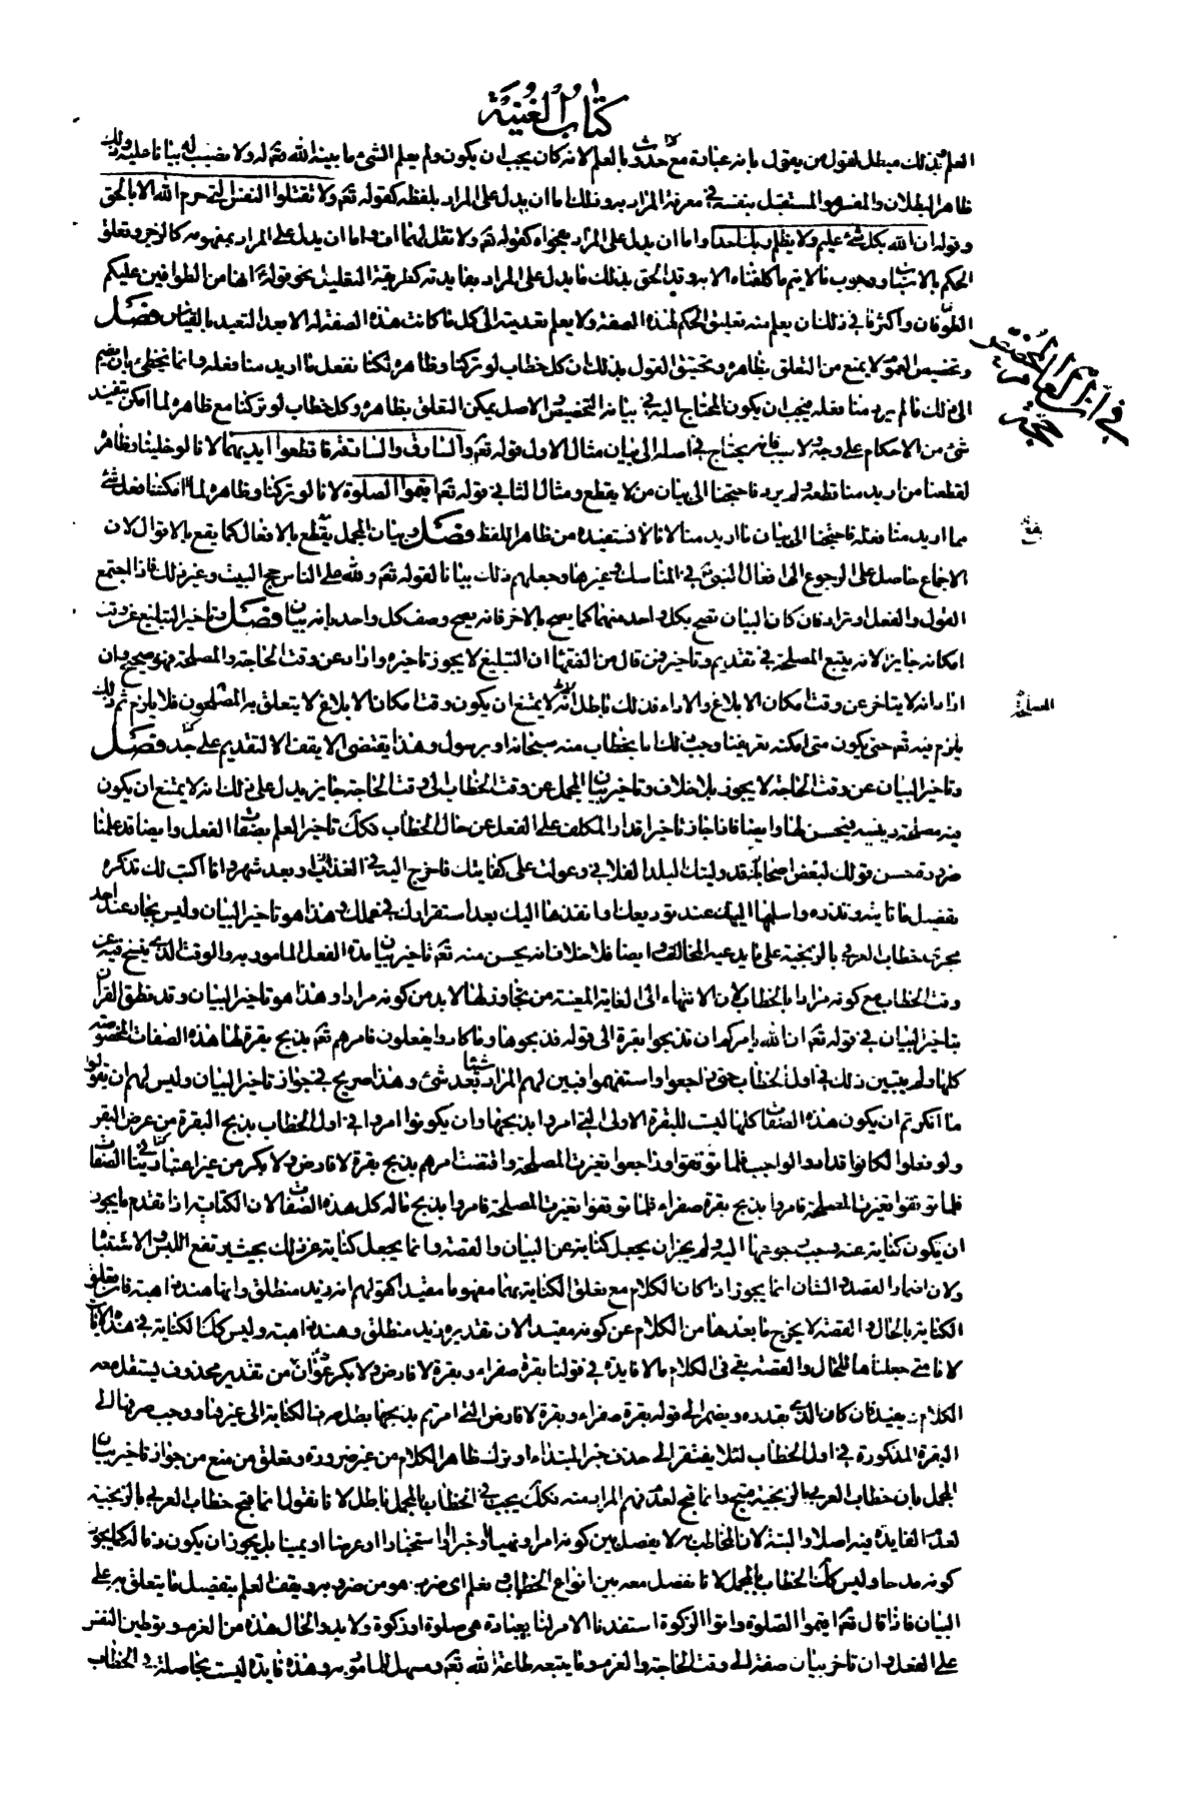 كتاب الغنية
العلم بذلك مبطل لقول من يقول بانه عبادة مع حدوث بالعلم لانه كان يجب ان يكون ولم يعلم الشئ ما بينه الله تعم له ولا نصب له بيانا عليه وذلك
ظاهر البطلان والمفسر والمستقبل بنفسه في معرفة المراد به وذلك اما ان يدل على المراد بلفظه كقوله تعم ولا تقتلوا النفس التي حرم الله الا بالحق
وقوله ان الله بكل شئ عليم ولا يظلم ربك احدا واما ان يدل على المراد بفحواه كقوله تعم ولا تقل لهما اف واما ان يدل على المراد بمفهومه كالزجر وتعلق
الحكم بالاسباب ووجوب ما لا يتم ما كلفناه الا به وقد الحق بذلك ما يدل على المراد بفايدته كطريقة التعليل نحو قوله انها من الطوافين عليكم
الطوفان واكثر ما في ذلك ان يعلم منه تعليق الحكم لهذه الصفة ولا يعلم تعديته الى كل ما كانت هذه الصفة له الا بعد التعبد بالقياس فصل
وتخصيص العموم لا يمنع من التعلق بظاهره وتحقيق القول بذلك ان كل خطاب لو تركنا وظاهره لكنا نفعل ما اريد منا فعله وانما نخطئ بان نضم
الى ذلك ما لم يرد منا فعله فيجب ان يكون المحتاج اليه في بيانه التخصيص والاصل يمكن التعلق بظاهره وكل خطاب لو تركنا مع ظاهره لما امكن تنفيذ
شئ من الاحكام على وجه ولا سبب فانه يحتاج في اصله الى بيان مثال الاول قوله تعم والسارق والسارقة فاقطعوا ايديهما لانا لو خلينا وظاهره
لقطعنا من اريد منا قطعه ولم يرد فاحتجنا الى بيان من لا يقطع ومثال الثاني قوله تعم اقيموا الصلوة لانا لو تركنا وظاهره لما امكننا فعل شئ
مما اريد منا فعله فاحتجنا الى بيان ما اريد منا لانا لا نستفيده من ظاهر اللفظ فصل وبيان المجمل يقع بالافعال كما يقع بالاقوال لان
الاجماع حاصل على الرجوع الى افعال النبي في المناسك وغيرها وجعلهم ذلك بيانا لقوله تعم ولله على الناس حج البيت وغير ذلك فاذا اجتمع
القول والفعل وترادفا كان البيان يصح بكل واحد منهما كما يصح بالاخر فانه يصح وصف كل واحد بانه بيان فصل وتاخير التبليغ عن وقت
امكانه جايز لانه يتبع المصلحة في تقديمه وتاخيره فمن قال من الفقهاء ان التبليغ لا يجوز تاخيره واراد عن وقت الحاجة والمصلحة فهو صحيح وان
اراد انه لا يتاخر عن وقت امكان الابلاغ والاداء فذلك باطل لانه لا يمتنع ان يكون وقت امكان الابلاغ لا يتعلق به المصلحة فلا يلزم ثم ذلك
يلزم فيه تعم حتى يكون متى امكنه تعريفنا وجب ذلك اما بخطاب منه سبحانه او برسول وهذا يقتضي الا يقف التقديم على حد فصل
وتاخير البيان عن وقت الحاجة لا يجوز بلا خلاف وتاخير بيان المجمل عن وقت الخطاب الى وقت الحاجة جايز يدل على ذلك انه لا يمتنع ان يكون
فيه مصلحة دينية فيحسن لها وايضا فاذا جاز تاخير اقدار المكلف على الفعل عن حال الخطاب فكذلك تاخير العلم بصفات الفعل وايضا قد علمنا
ضرورة حسن قولك لبعض اصحابك قد وليتك البلد الفلاني وعولت على كفايتك فاخرج اليه في الغد او بعد شهر وانا اكتب لك تذكرة
بتفصيل ما تاتيه وتذره واسلمها اليك عند توديعك وانفذها اليك بعد استقرارك في عملك وهذا هو تاخير البيان وليس بجار عند احد
مجرى خطاب العربي بالزنجية على ما يدعيه المخالف وايضا فلا خلاف انه يحسن منه تعم تاخير بيان مدة الفعل المامور به والوقت الذي ينسخ فيه عن
وقت الخطاب مع كونه مرادا بالخطاب لان الانتهاء الى الغاية المعينة من تجاوزها لا بد من كونه مرادا وهذا هو تاخير البيان وقد نطق القران
بتاخير البيان في قوله تعم ان الله يامركم ان تذبحوا بقرة الى قوله فذبحوها وما كادوا يفعلون فامرهم تعم بذبح بقرة لها هذه الصفات المخصوصة
كلها ولم يبين ذلك في اول الخطاب حتى راجعوا واستفهموا فبين لهم المراد شيئا بعد شئ وهذا صريح في جواز تاخير البيان وليس لهم ان يقولوا
ما انكرتم ان يكون هذه الصفات كلها ليست للبقرة الاولى التي امروا بذبحها وان يكونوا امروا في اول الخطاب بذبح البقرة من عرض البقر
ولو فعلوا لكانوا قد ادوا الواجب فلما توقفوا وراجعوا تغيرت المصلحة واقتضت امرهم بذبح بقرة لا فارض ولا بكر من غير اعتبار في باقي الصفات
فلما توقفوا تغيرت المصلحة فامروا بذبح بقرة صفراء فلما توقفوا تغيرت المصلحة فامروا بذبح ما له كل هذه الصفات لان الكتابة اذا تقدم ما يجوز
ان يكون كناية عنه وسبب رجوعها اليه ولم يجز ان يجعل كناية عن البيان والقصة وانما يجعل كناية عن ذلك بحيث يرتفع اللبس والاشتباه
ولان اضمار القصة والشان انما يجوز اذا كان الكلام مع تعلق الكناية بهما مفهوما مفيدا كقولهم انه زيد منطلق وانها هند ذاهبة فان تعلق
الكناية بالحال والقصة لا يخرج ما بعدها من الكلام عن كونه مفيدا لان تقديره زيد منطلق وهند ذاهبة وليس كذلك الكناية في هذه الايات
لانا متى جعلناها للحال والقصة بقي في الكلام ما لا فايدة في قولنا بقرة صفراء وبقرة لا فارض ولا بكر عوان من تقدير محذوف يستقل معه
الكلام ويفيد فان كان الذي يقدره ويضم الى قوله بقرة صفراء وبقرة لا فارض التي امرتم بذبحها بطل صرف الكناية الى غيرها ووجب صرفها الى
البقرة المذكورة في اول الخطاب لئلا يفتقر الى حذف خبر المبتداء او ترك ظاهر الكلام من غير ضرورة وتعلق من منع من جواز تاخير بيان
المجمل بان خطاب العربي بالزنجية قبيح وانما قبح لعدم فهم المراد منه فكذلك يجب في الخطاب بالمجمل باطل لانا نقول انما قبح خطاب العربي بالزنجية
لعدم الفايدة فيه اصلا والبتة لان المخاطب به لا يفصل بين كونه امرا ونهيا وخبرا او استخبارا او عرضا او يمينا بل يجوز ان يكون ذما له كما يجوز
كونه مدحا وليس كذلك الخطاب بالمجمل لانا نفصل معه بين انواع الخطاب ونعلم اى ضرب هو من ضروبه ويقف العلم بتفصيل ما يتعلق به على
البيان فاذا قال تعم اقيموا الصلوة واتوا الزكوة استفدنا الامر لنا بعبادة هي صلوة او زكوة ولا بد والحال هذه من العزم وتوطين النفس
على الفعل وان تاخر بيان صفته الى وقت الحاجة والعزم وما يتبعه طاعة لله تعم ومسهل للمامور به وهذه فايدة ليست بحاصلة في الخطاب
يقع
المصلحة